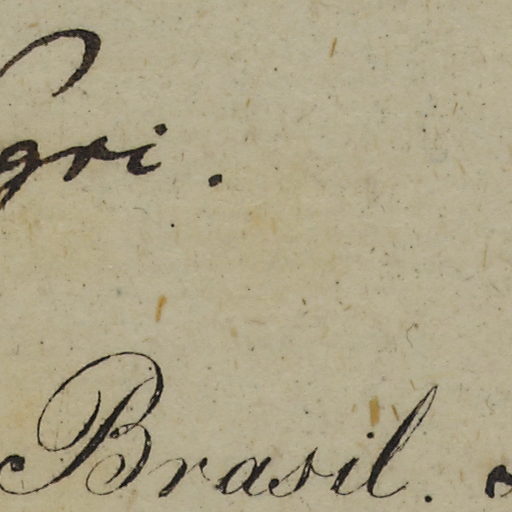 gri.
Brasil.